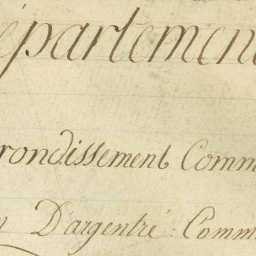 épartement
rondissement Comm
D'argentré : Comm